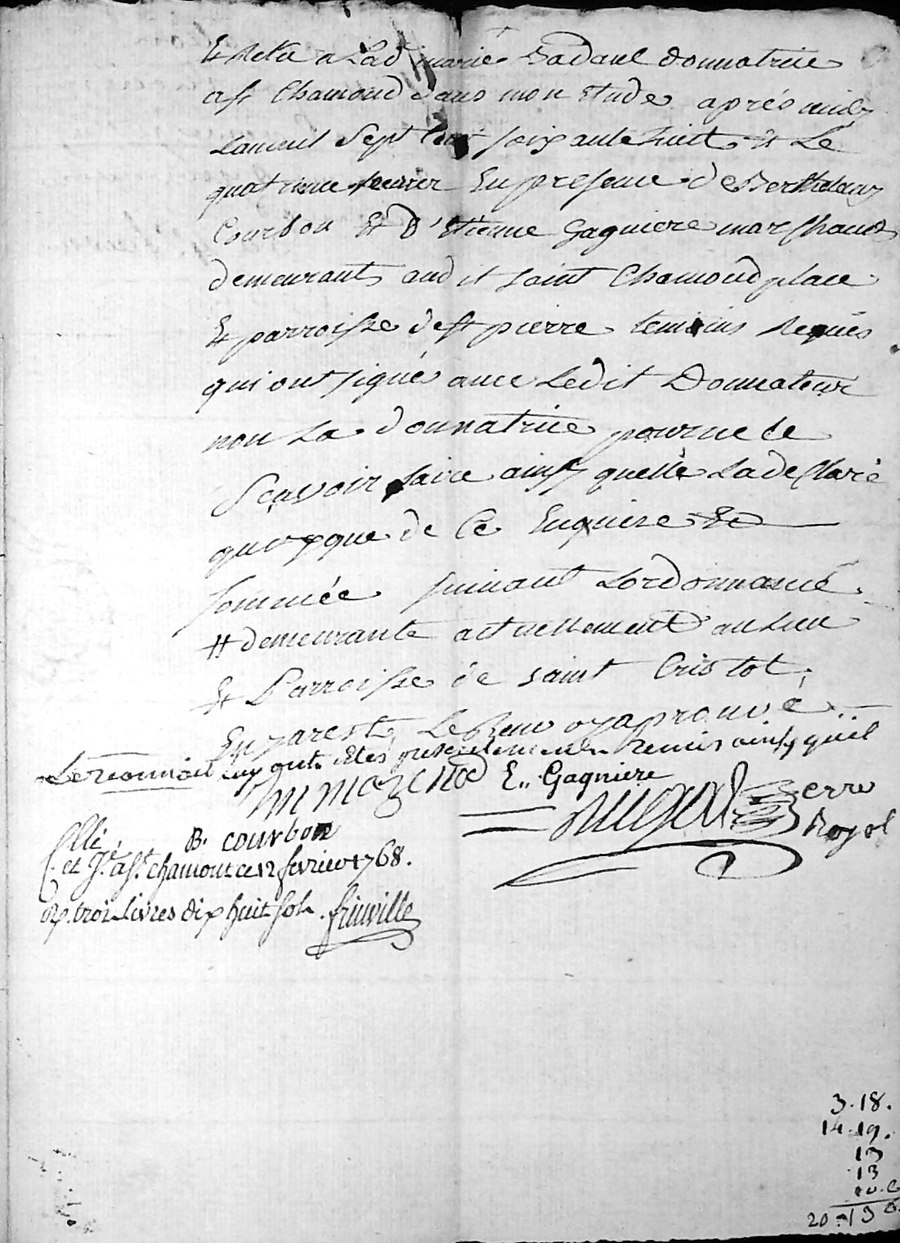 Et Acte a Lad marie Badaul donnatrice
a St Chamond dans mon Etude après midy
Lan mil Sept Cent soixante huit & Le
quatrieme fevrier En presence de Berthelemy
Courbon Et D'Etienne Gagniere marchands
demeurants aud it saint Chamond place
Et parroisse de St pierre temoins Requis
qui ont signé avec Ledit Donnateur
non La donnatrice pour ne le
Scavoir faire ainsy quelle La declaré
quoyque de Ce Enquise Et
sommée suivant Lordonnance
# demeurante actuellement au lieu
Et Parroisse de saint Cristot,
En Jarest, Le Renvoy aprouvé
Et Gagniere
B. courbon
Serre
Royal
Cllé
et St chamont ce 12 fevrier 1768.
trois Livres dix huit sols
3-18.
14-19.
13
13
20-13